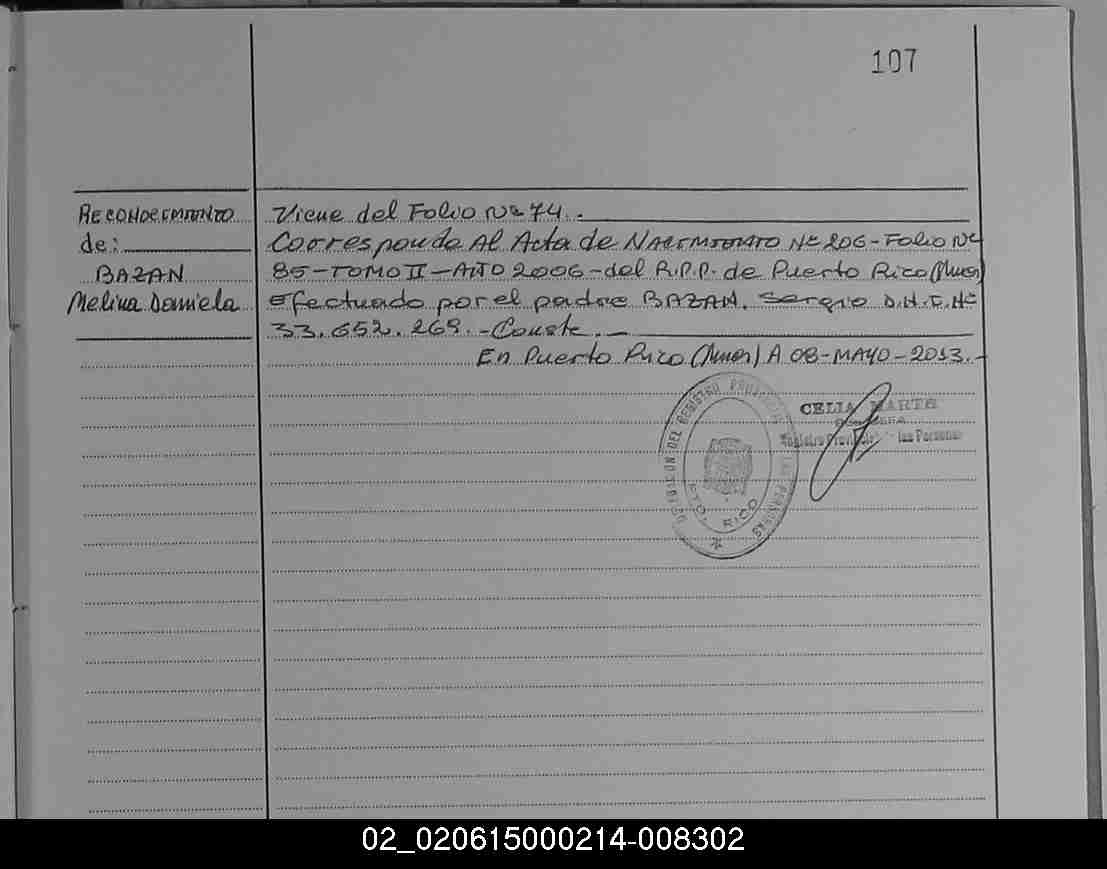 107
RECONOCIMIENTO
de:
BAZAN
Melina Daniela
Viene del Folio Nº 74.
Corresponde Al Acta de NACIMIENTO Nº 206-Folio Nº
85-TOMO II-AÑO 2006-del R.P.P. de Puerto Rico (Mnes)
efectuado por el padre BAZAN, Sergio D.N.I. Nº
33.652.269.-Conste.
En Puerto Rico (Mnes) A 08-MAYO-2013.-
CELIA MARTA
Registro Provincial las Personas
DELEGACION DEL REGISTRO PROVINCIAL LAS PERSONAS
PTO. RICO
02_020615000214-008302